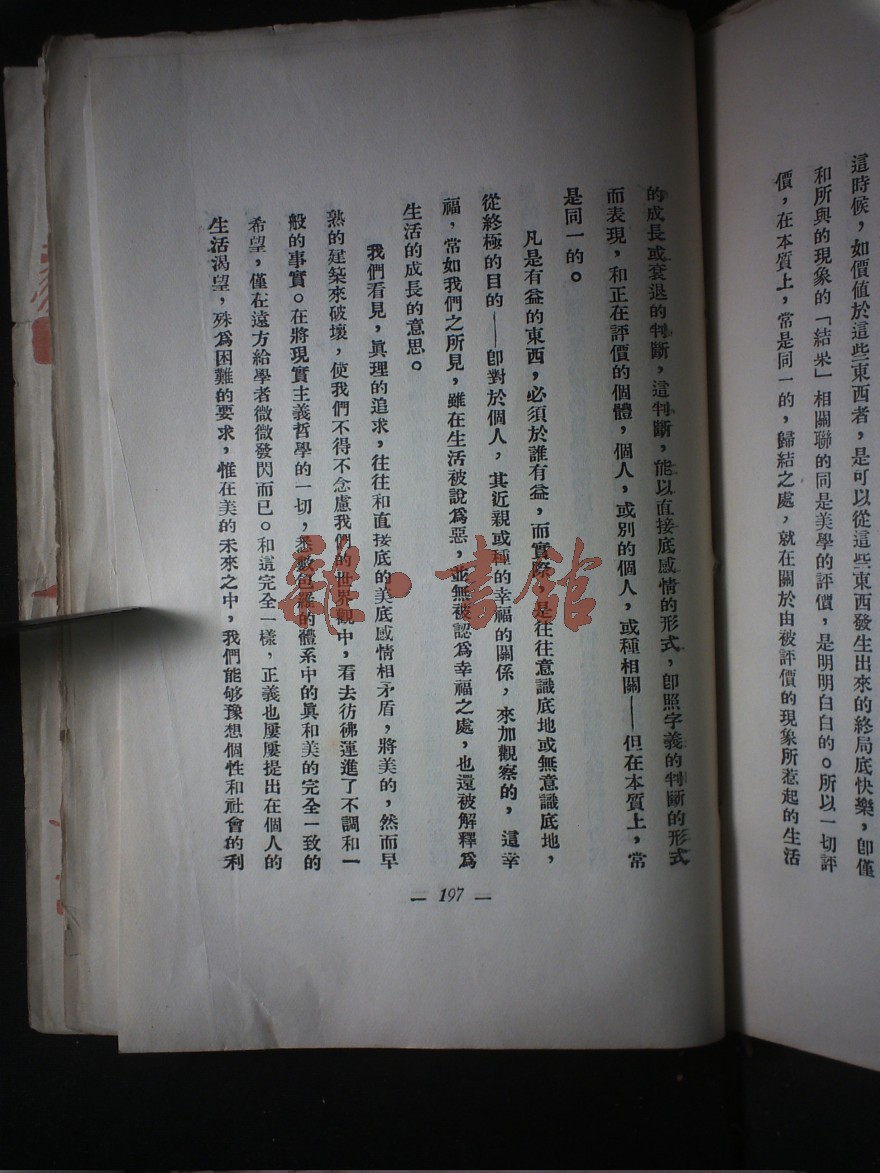 這時候，如價値於這些東西者，是可以從這些東西發生出來的終局底快樂，卽僅
和所與的現象的「結果」相關聯的同是美學的評價，是明明白白的。所以一切評
價，在本質上，常是同一的，歸結之處，就在關於由被評價的現象所惹起的生活
的成長或衰退的判斷，這判斷，能以直接底感情的形式，卽照字義的判斷的形式
而表現，和正在評價的個體，個人，或別的個人，或種相關——但在本質上，常
是同一的。
凡是有益的東西，必須於誰有益，而實際，是往往意識底地或無意識底地，
從終極的目的——卽對於個人，其近親或種的幸福的關係，來加觀察的，這幸
福，常如我們之所見，雖在生活被說爲惡，並無被認爲幸福之處，也還被解釋爲
生活的成長的意思。
我們看見，眞理的追求，往往和直接底的美底感情相矛盾，將美的，然而早
熟的建築來破壞，使我們不得不念慮我們的世界觀中，看去彷彿運進了不調和一
般的事實。在將現實主義哲學的一切，悉數包羅的體系中的眞和美的完全一致的
希望，僅在遠方給學者微微發閃而已。和這完全一樣，正義也屢屢提出在個人的
生活渴望，殊爲困難的要求，惟在美的未來之中，我們能够豫想個性和社會的利
— 197 —
雜·書館